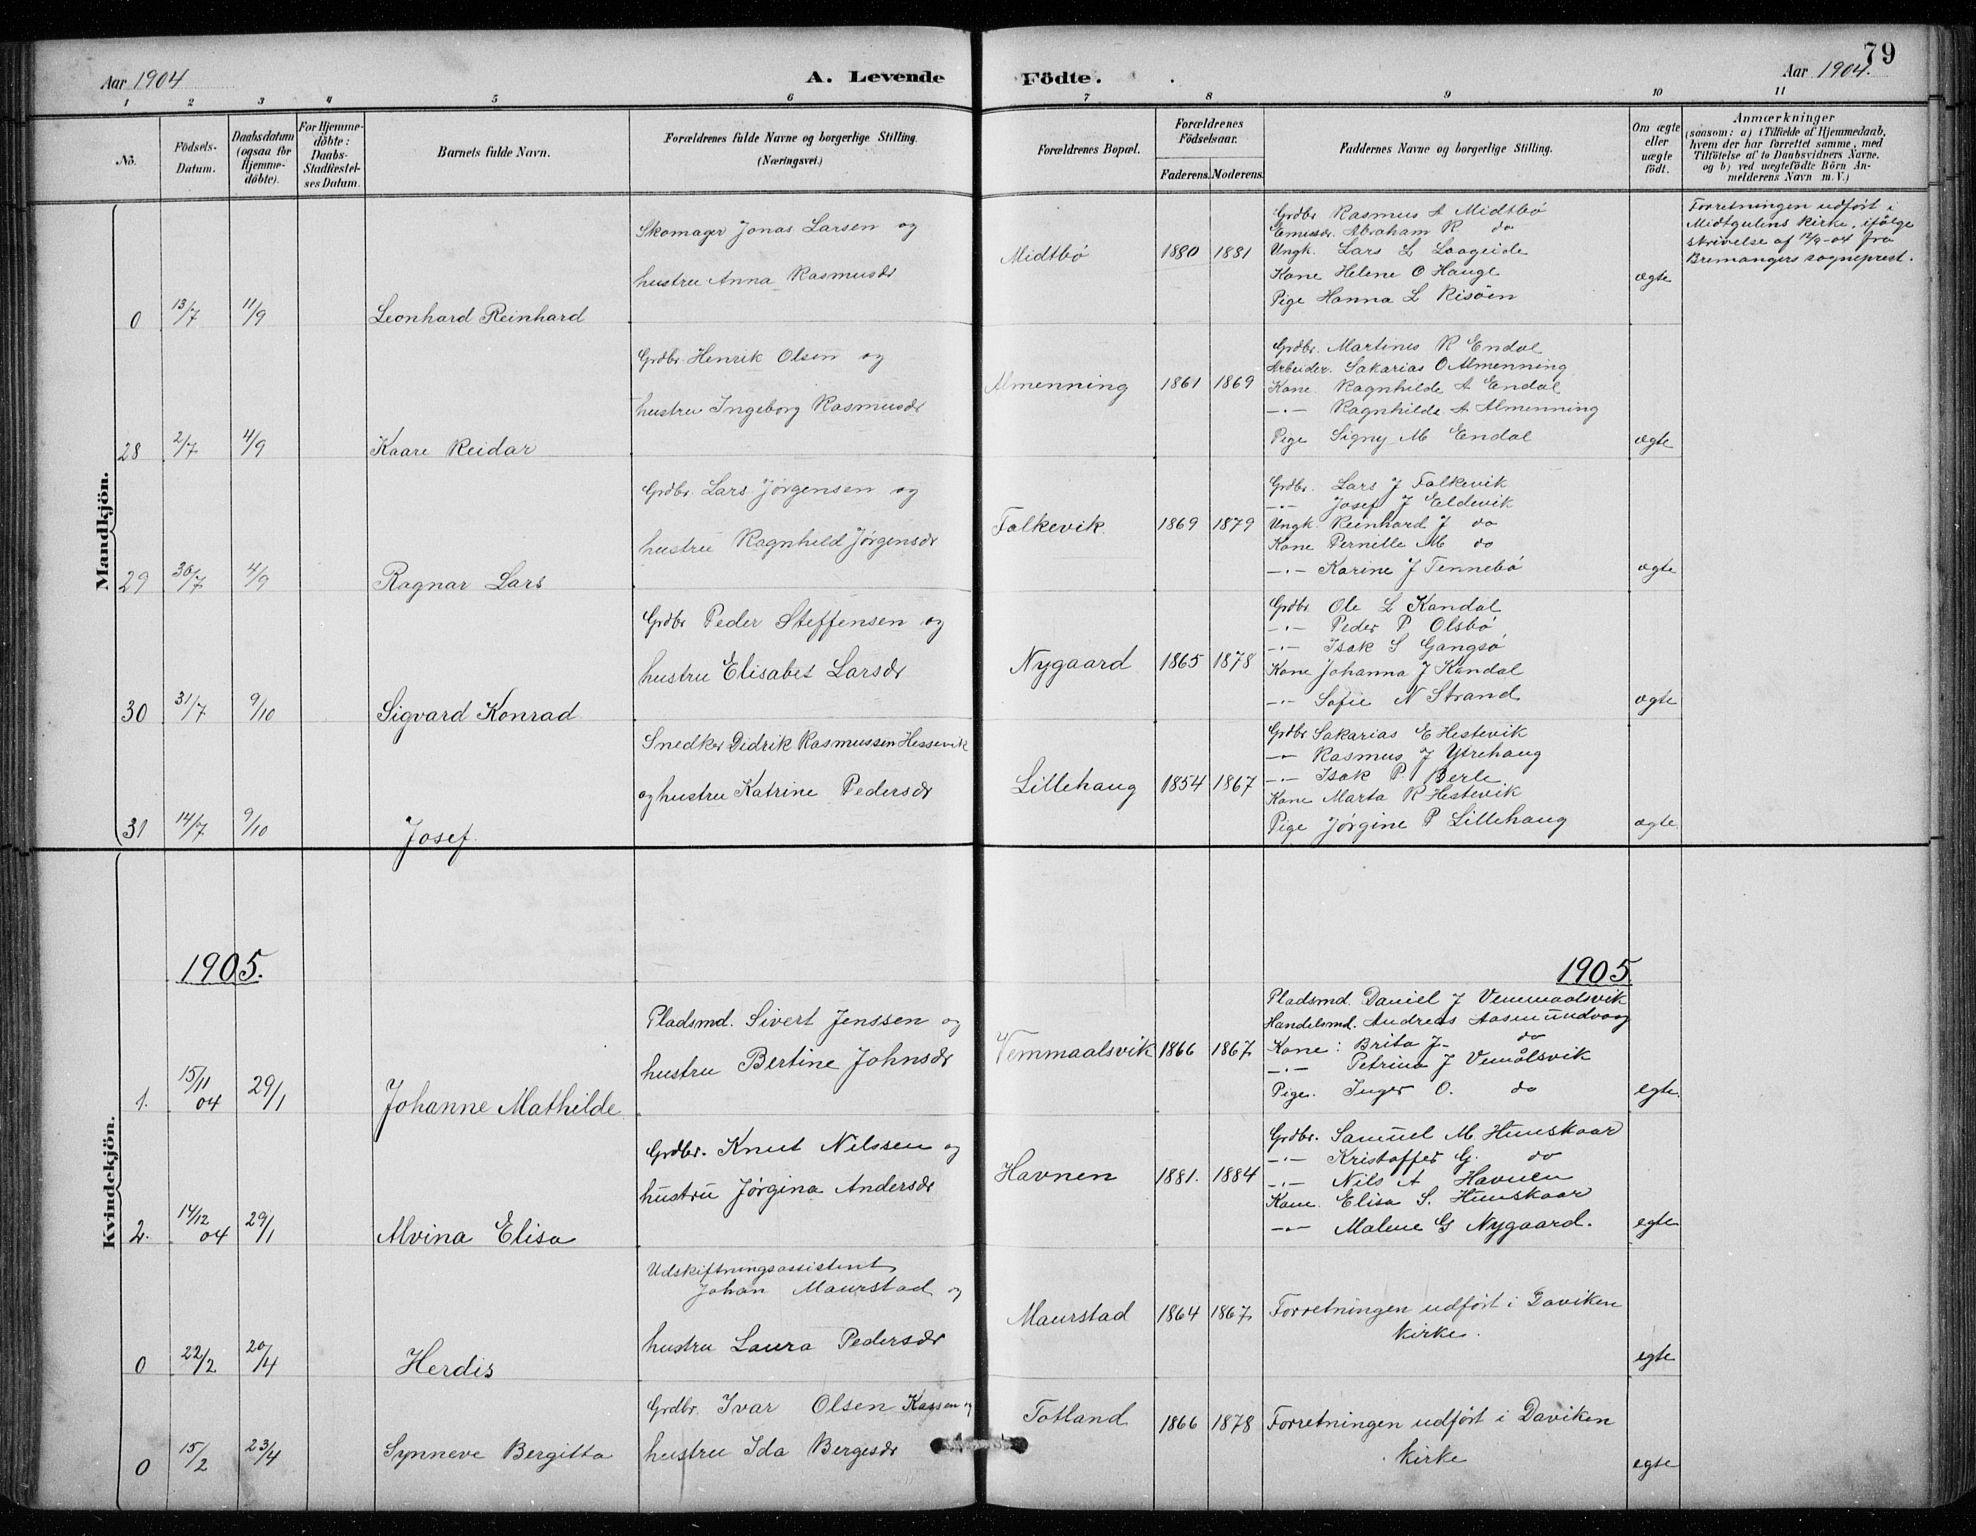 79
Aar 1904
A. Levende Födte.
Aar 1904.
1 2 3 4 5 6 7 8 9 10 11
No.
Födsels-
Datum.
Daabsdatum
(ogsaa for
Hjemme-
döbte).
For Hjemme-
döbte:
Daabs-
Stadfæstel-
ses Datum.
Barnets fulde Navn.
Forældrenes fulde Navne og borgerlige Stilling.
(Næringsvei.)
Forældrenes Bopæl.
Forældrenes
Födselsaar.
Faderens. Moderens.
Faddernes Navne og borgerlige Stilling.
Om ægte
eller
uægte
födt.
Anmærkninger
(saasom: a) i Tilfælde af Hjemmedaab,
hvem der har forrettet samme, med
Tilföielse af to Daabsvidners Navne,
og b) ved uægtefödte Börn An-
melderens Navn m. V.)
Mandkjön.
0 13/7 11/9 Leonhard Reinhard
Skomager Jonas Larsen og
hustru Anna Rasmusdr
Midtbö 1880 1881
Grdbr Rasmus A Midtbö
Emissr. Abraham R do
Ungk. Lars L Laageide
Kone Helene O Hauge
Pige Hanna L Risöen
ægte
Forretningen udfört i
Midtgulens kirke, ifölge
skrivelse af 12/9-04 fra
Bremangers sogneprest.
28 2/7 4/9 Kaare Reidar
Grdbr. Henrik Olsen og
hustru Ingeborg Rasmusdr
Almenning 1861 1869
Grdbr. Martinus R Endal
Arbeider. Sakarias O Almenning
Kone Ragnhilde A Endal
-"- Ragnhilde A Almenning
Pige Signy M Endal
ægte
29 30/7 4/9 Ragnar Lars
Grdbr Lars Jørgensen og
hustru Ragnhild Jørgensdr
Falkevik 1869 1879
Grdbr. Lars J Falkevik
-"- Josef J Eldevik
Ungk. Reinhard J do
Kone Pernille M do
-"- Karine J Tennebö
ægte
30 31/7 9/10 Sigvard Konrad
Grdbr Peder Steffensen og
hustru Elisabet Larsdr
Nygaard 1865 1878
Grdbr Ole L Kandal
-"- Peder P Olsbö
-"- Isak S Gangsö
Kone Johanna J Kandal
-"- Sofie N Strand
ægte
31 14/7 9/10 Josef
Snedker Didrik Rasmussen Hessevik
og hustru Katrine Pedersdr
Lillehaug 1854 1867
Grdbr Sakarias E Hestevik
-"- Rasmus J Ytrehaug
-"- Isak P. Berle
Kone Marta R Hestevik
Pige Jørgine P Lillehaug
ægte
1905. 1905.
Kvindekjön.
1. 15/11 04 29/1 Johanne Mathilde
Pladsmd. Sivert Jenssen og
hustru Bertine Johnsdr
Vemmaalsvik 1866 1867
Pladsmd. Daniel J Vemmaalsvik
Handelsmd. Andreas Aasmundvaag
Kone: Brita J- do
-"- Petrina J Vemålsvik
Pige. Inger O. do
egte
2. 14/12 04 29/1 Alvina Elisa
Grdbr. Knut Nilssen og
hustru Jørgina Andersdr
Havnen 1881. 1884
Grdbr. Samuel M. Hunskaar
-"- Kristoffer G. do
-"- Nils A Havnen
Kone Elisa S. Hunskaar
-"- Malene G Nygaard.
egte
0 22/2 20/4 Herdis
Udskiftningsassistent
Johan Maurstad og
hustru Laura Pedersdr
Maurstad 1864 1867
Forretningen udfört i Daviken
kirke.
egte
0 15/2 23/4 Synneve Bergitta
Grdbr. Ivar Olsen og
hustru Ida Bergesdr
Totland 1866 1878
Forretningen udfört i Daviken
kirke
egte